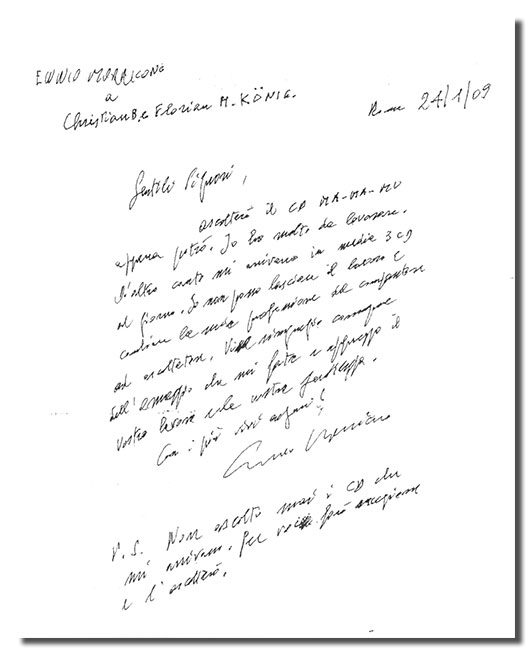 ENNIO MORRICONE
a
Christian B. e Florian M. KÖNIG.
Roma 24/1/09
Gentili Signori,
ascolterò il CD MA-MA-MU
appena potrò. Io ho molto da lavorare.
D'altro canto mi arrivano in media 3 CD
al giorno. Io non posso lasciare il lavoro e
cambiare la mia professione di compositore
ad ascoltatore. Vi ringrazio comunque
dell'omaggio che mi fate e apprezzo il
vostro lavoro e la vostra
Con i più vivi auguri
Ennio Morricone
P.S. Non ascolto mai i CD che
mi arrivano. Per voi farò eccezione
e l'ascolterò.